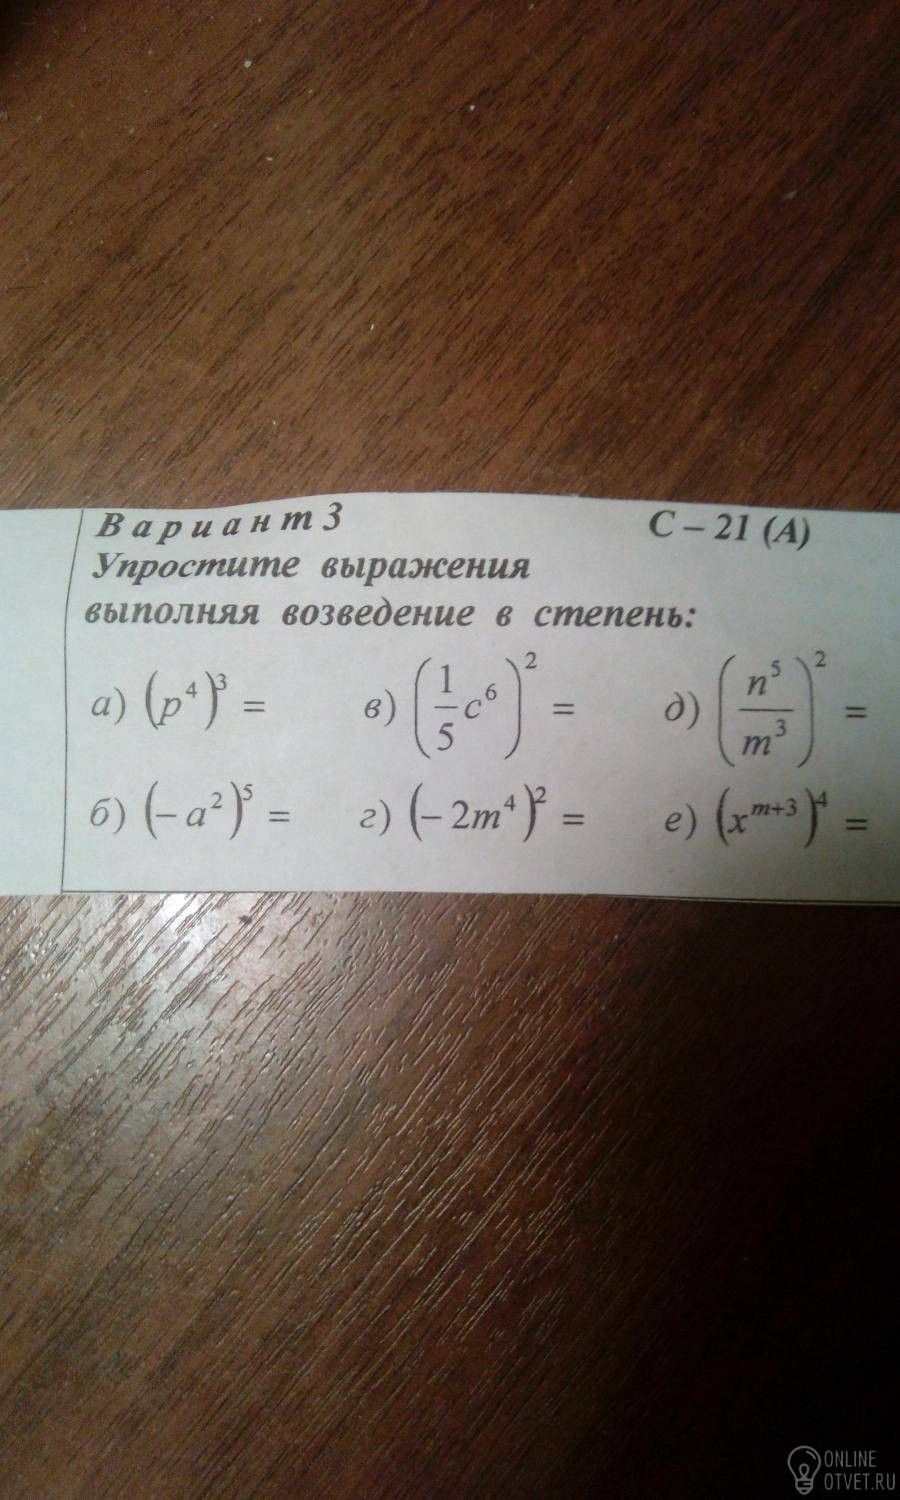 Вариант 3 С – 21 (А)
Упростите выражения
выполняя возведение в степень:
а) (p⁴)³ = в) (1/5 c⁶)² = д) (n⁵/m³)² =
б) (– a²)⁵ = г) (– 2m⁴)² = е) (xᵐ⁺³)⁴ =
ONLINE
OTVET.RU